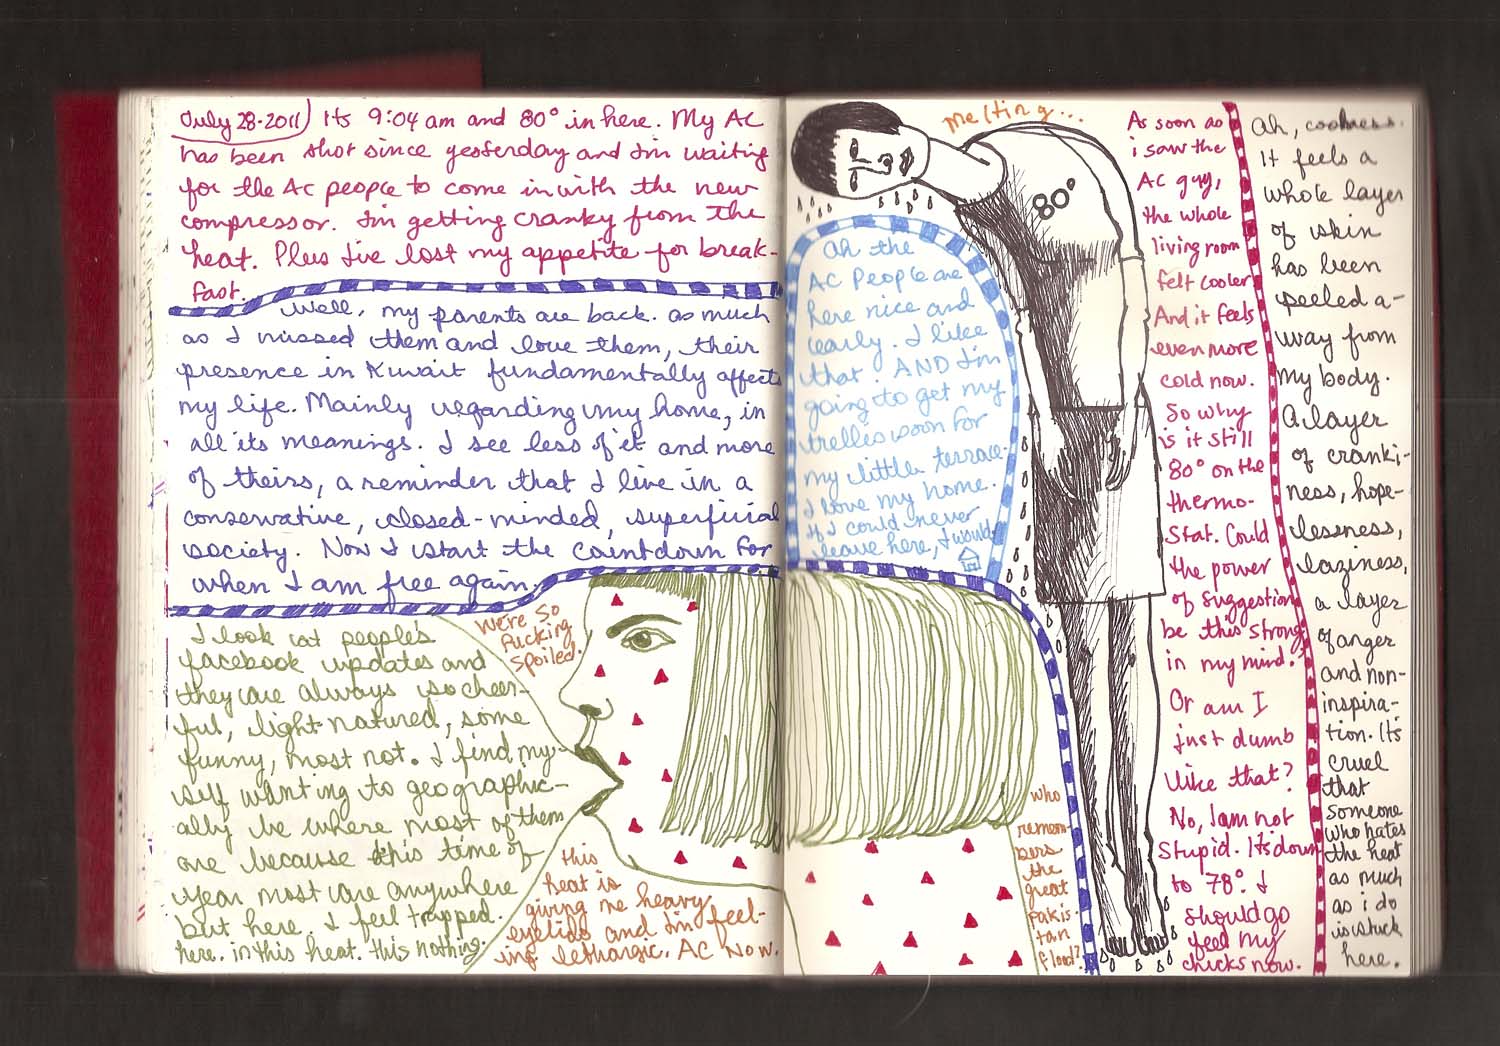 July 28-2011) Its 9:04 am and 80° in here. My AC
has been shot since yesterday and I'm waiting
for the AC people to come in with the new
compressor. I'm getting cranky from the
heat. Plus I've lost my appetite for break-
fast.
Well, my parents are back. As much
as I missed them and love them, their
presence in Kuwait fundamentally affects
my life. Mainly regarding my home, in
all its meanings. I see less of it and more
of theirs, a reminder that I live in a
conservative, closed-minded, superficial
society. Now I start the countdown for
when I am free again.
I look at people's
facebook updates and
they are always so cheer-
ful, light natured, some
funny, most not. I find my-
self wanting to geographic-
ally be where most of them
are because this time of
year most are anywhere
but here. I feel trapped.
here. in this heat. this nothing.
We're so
fucking
spoiled.
this
heat is
giving me heavy
eyelids and I'm feel-
ing lethargic. AC Now.
melting...
80°
Ah the
AC People are
here nice and
early. I like
that. AND I'm
going to get my
trellis soon for
my little terrace.
I love my home.
If I could never
leave here, I would.
who
remem-
bers
the
great
pakis-
tan
flood?
As soon as
i saw the
AC guy,
the whole
living room
felt cooler
And it feels
even more
cold now.
So why
is it still
80° on the
thermo-
stat. Could
the power
of suggestion
be this strong
in my mind?
Or am I
just dumb
like that?
No, I am not
stupid. Its down
to 78°. I
should go
feed my
chicks now.
Ah, coolness.
It feels a
whole layer
of skin
has been
peeled a-
way from
my body.
A layer
of cranki-
ness, hope-
lessness,
laziness,
a layer
of anger
and non-
inspira-
tion. Its
cruel
that
someone
who hates
the heat
as much
as i do
is stuck
here.